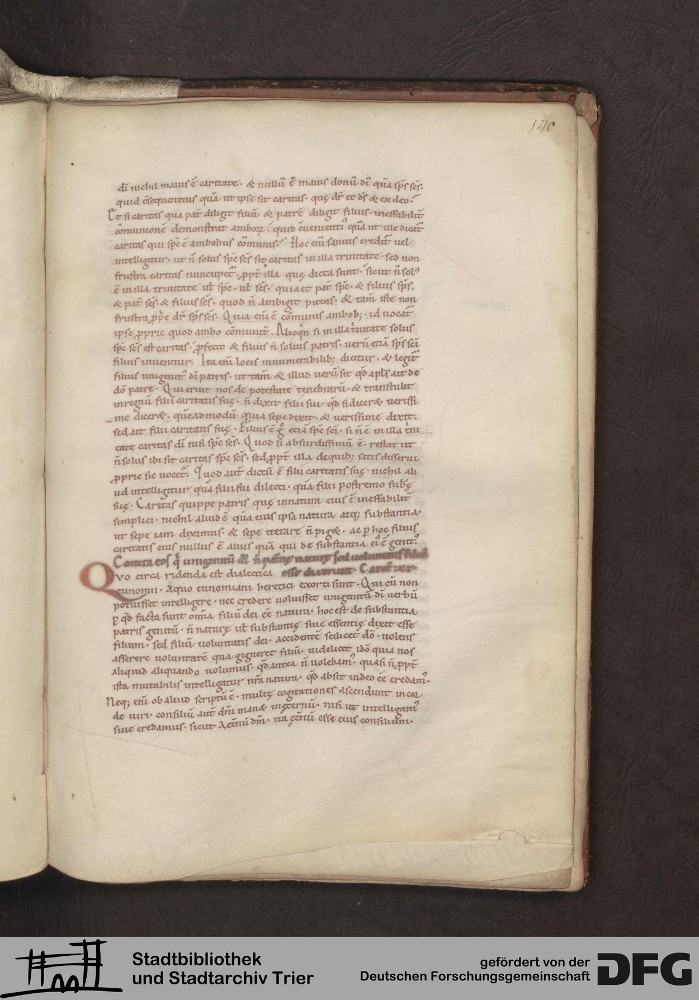 146
di nichil maius ē caritate · & nullū ē maius donū di quā sps scs ·
quid cōsequentius quā ut ipse sit caritas · quę dr et ds & ex deo ·
Et si caritas qua pat diligit filiū · & patrē diligit filius · ineffabilit
cōmunionē demonstrat amborꝝ · quid cōuenienti quā ut ille dicat
caritas qui spc ē ambobus cōmunis · Hoc enī sanius credit vel
intelligitur · ut n̄ solus spc scs sit caritas in illa trinitate · sed non
frustra caritas nuncupet ꝓpt illa quę dicta sunt · sicut n̄ sol
ē in illa trinitate ul spc · ul scs · quia et pat spc · & filius sps ·
& pat scs · & filius scs · quod n̄ ambigit pietas · & tam iste non
frustra ꝓprie dr sps scs · Quia enī ē cōmunis ambob; · id vocat
ipse ꝓprie quod ambo cōmunit · Alioqn si in illa trinitate solus
spc scs est caritas · ꝓfecto & filius n̄ solius patris · verū etiā sps sci
filius inuenitur · Ita enī locis innumerabilib; dicitur · & legit
filius unigenit di patris · ut tam & illud verū sit qd apls ait de
dō patre · Qui eruit nos de potestate tenebrarū · & transtulit
in regnū filii caritatis suę · n̄ dixit filii sui · qd si diceret verissi
me diceret · quēadmodū quia sepe dixit · & verissime dixit ·
sed ait filii caritatis suę · Filius ē g etiā spc sci · si n̄ ē in illa tini
tate caritas di nisi spc scs · Quod si absurdissimū ē · restat ut
n̄ solus ibi sit caritas spc scs · sed ꝓpt illa de quib; satis disserui
ꝓprie sic vocet · Quod aut dictū ē filii caritatis suę · nichil ali
ud intelligitur quā filii sui dilecti · quā filii postremo subę
suę · Caritas quippe patris quę in natura eius ē ineffabilit
simplici · nichil aliud ē quā eius ipsa natura atq; substantia ·
ut sepe iam diximus · & sepe iterare n̄ piget · ac p hoc filius
caritatis eius nullus ē alius quā qui de substantia ei ē genit ·
Contra eos q unigenitū di n̄ patris naturę sed voluntatis filiū
Quo circa ridenda est dialectica esse dixerunt ·
eunomii · A quo eunomiani heretici exorti sunt · Qui cū non
potuisset intelligere · nec credere voluisset unigenitū di verbū
p qd facta sunt omīa filiū dei ee natura · hoc est de substantia
patris genitū · n̄ naturę ul substantię suę essentię dixit esse
filium · sed filiū voluntatis dei · accidentē scilicet dō · volens
asserere voluntatē qua gigneret filiū · videlicet idō quia nos
aliquid aliquando volumus · qd antea n̄ volebam · quasi n̄ ꝓpt
ista mutabilis intelligatur nr̄a natura · qd absit in deo ee credam ·
Neq; enī ob aliud scriptū ē · multę cogitationes ascendunt in cor
de viri · consiliū aut dn̄i manet in eternū · nisi ut intelligam
siue credamus · sicut Aeternū dm̄ · ita eternū esse eius consiliūm ·
Stadtbibliothek
und Stadtarchiv Trier
gefördert von der
Deutschen Forschungsgemeinschaft
DFG